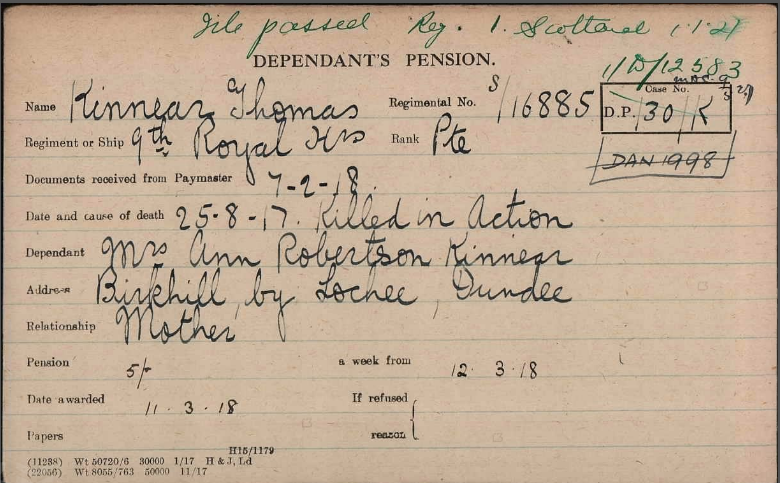 File passed Reg. 1. Scotland (1.2)
DEPENDANT'S PENSION.
1/D/12583
Name Kinnear Thomas Regimental No. S/16885
Case No.
D.P. 30 K
Regiment or Ship 9th Royal Hrs Rank Pte
DAN 1998
Documents received from Paymaster 7-2-18.
Date and cause of death 25-8-17. Killed in Action
Dependant Mrs Ann Robertson Kinnear
Address Birkhill, by Lochee, Dundee
Relationship Mother
Pension 5/- a week from 12.3.18
Date awarded 11.3.18 If refused
Papers reason
H15/1179
(11238) Wt 50720/6 30000 1/17 H & J, Ld
(22056) Wt 8055/763 50000 11/17